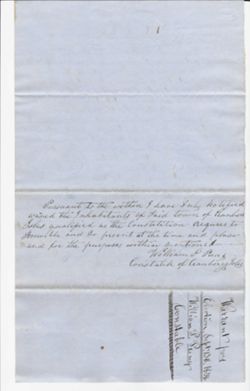 Pursuant to the within I have duly notified
warned the Inhabitants of said town of
qualified as the Constitution requires to
assemble and be present at the time and place
and for the purposes within mentioned
William P.
Constable of
Warrant for
Election Sept
William P.
Constable